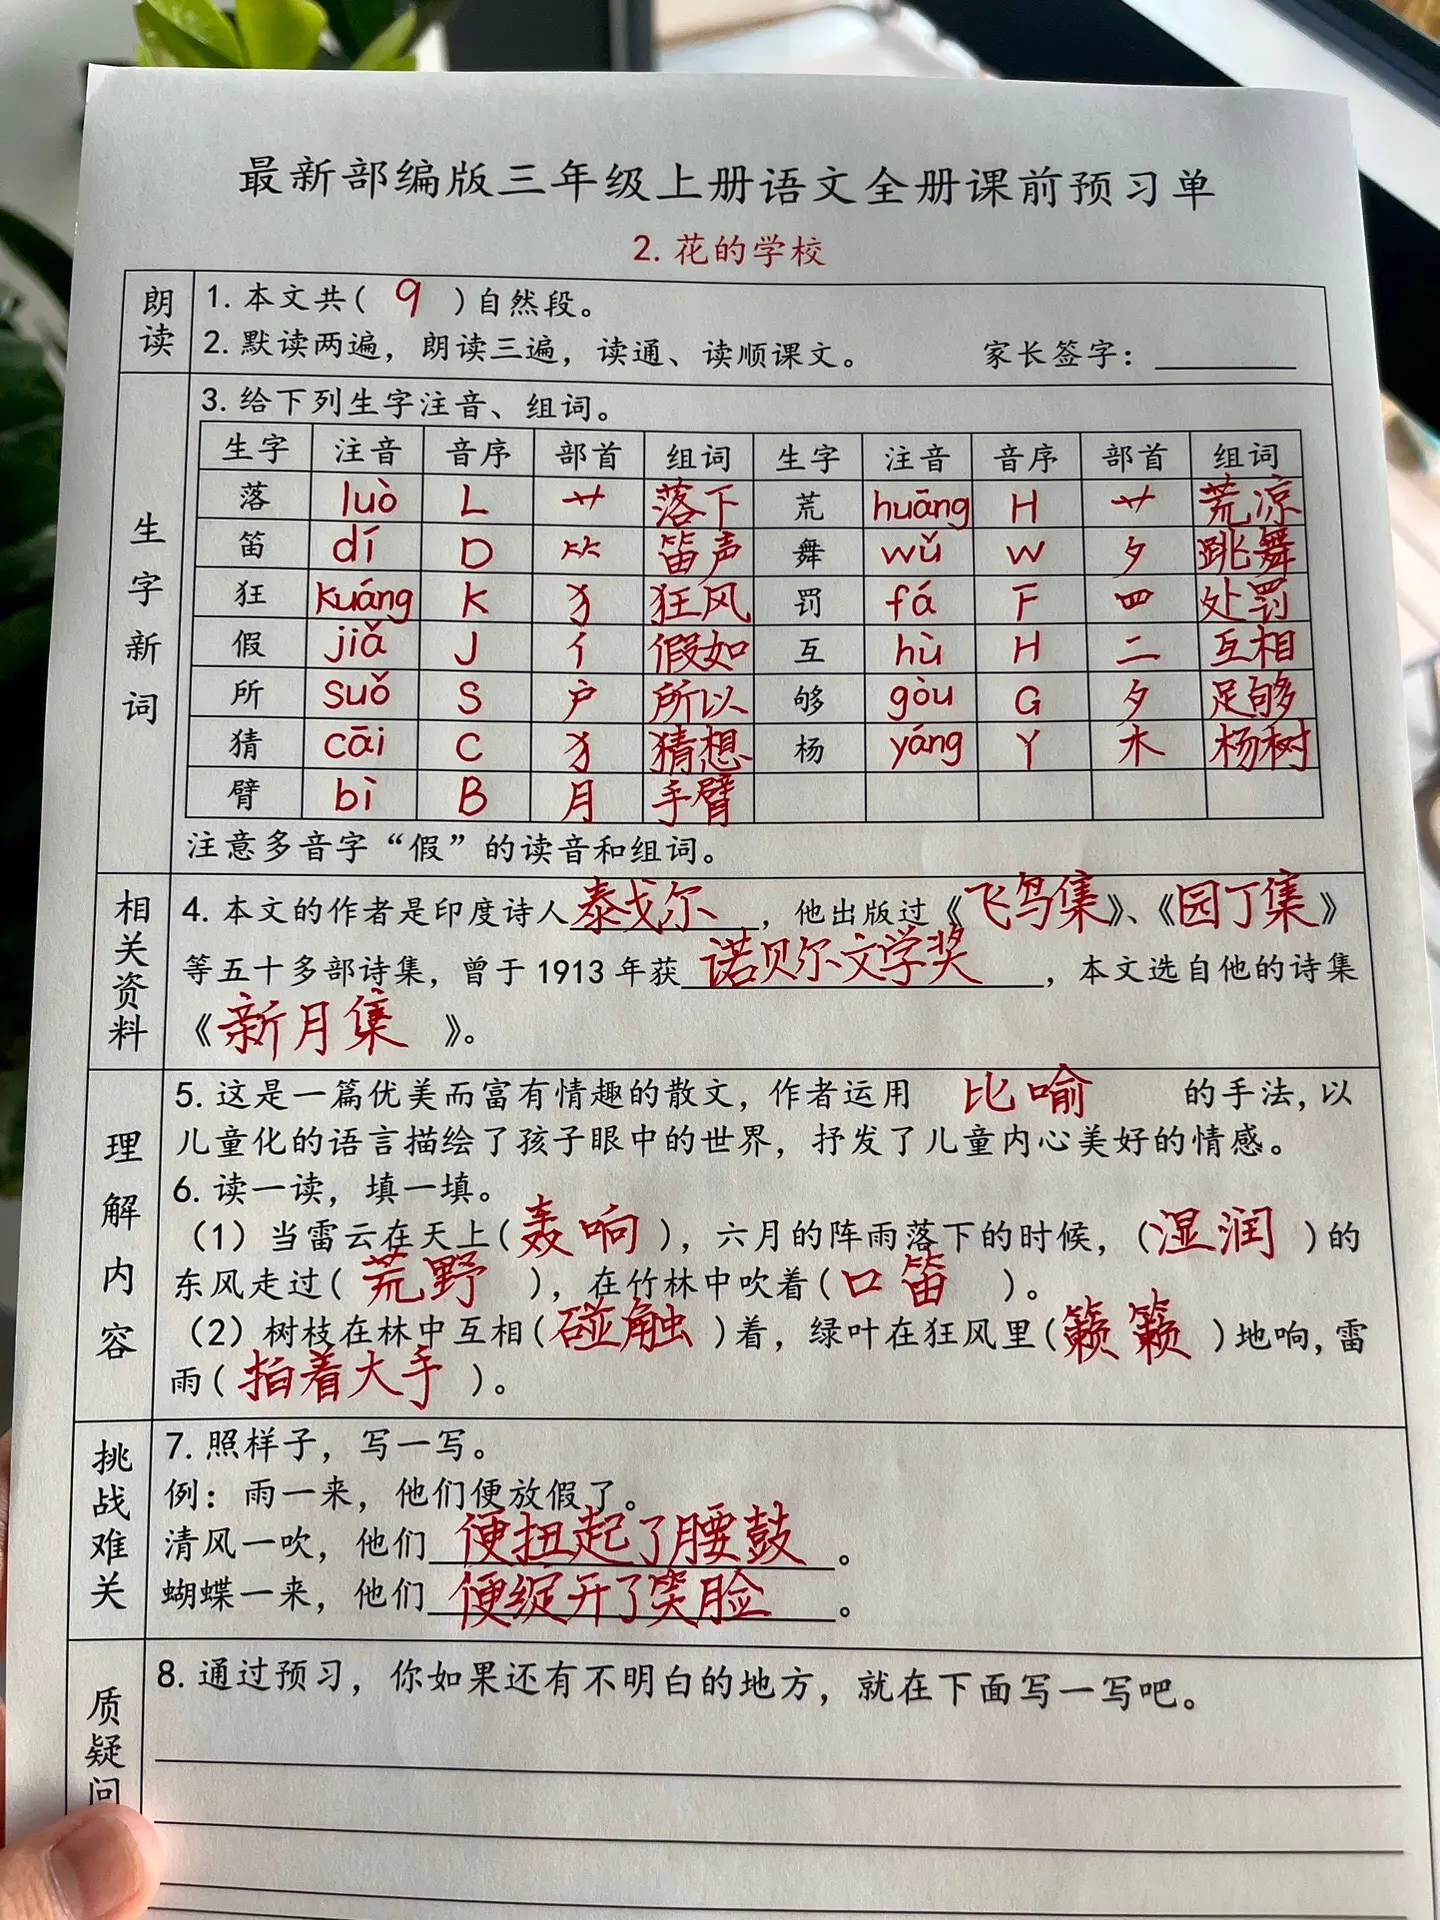 最新部编版三年级上册语文全册课前预习单
2.花的学校
朗读
1.本文共( 9 )自然段。
2.默读两遍，朗读三遍，读通、读顺课文。 家长签字：
生字新词
3.给下列生字注音、组词。
生字 注音 音序 部首 组词 生字 注音 音序 部首 组词
落 luò L 艹 落下 荒 huāng H 艹 荒凉
笛 dí D ⺮ 笛声 舞 wǔ W 夕 跳舞
狂 kuáng K 犭 狂风 罚 fá F 罒 处罚
假 jiǎ J 亻 假如 互 hù H 二 互相
所 suǒ S 户 所以 够 gòu G 夕 足够
猜 cāi C 犭 猜想 杨 yáng Y 木 杨树
臂 bì B 月 手臂
注意多音字“假”的读音和组词。
相关资料
4.本文的作者是印度诗人泰戈尔，他出版过《飞鸟集》、《园丁集》
等五十多部诗集，曾于1913年获诺贝尔文学奖，本文选自他的诗集
《新月集》。
理解内容
5.这是一篇优美而富有情趣的散文，作者运用 比喻 的手法，以
儿童化的语言描绘了孩子眼中的世界，抒发了儿童内心美好的情感。
6.读一读，填一填。
（1）当雷云在天上(轰响)，六月的阵雨落下的时候，(湿润)的
东风走过(荒野)，在竹林中吹着(口笛)。
（2）树枝在林中互相(碰触)着，绿叶在狂风里(簌簌)地响，雷
雨(拍着大手)。
挑战难关
7.照样子，写一写。
例：雨一来，他们便放假了。
清风一吹，他们便扭起了腰鼓。
蝴蝶一来，他们便绽开了笑脸。
质疑问
8.通过预习，你如果还有不明白的地方，就在下面写一写吧。